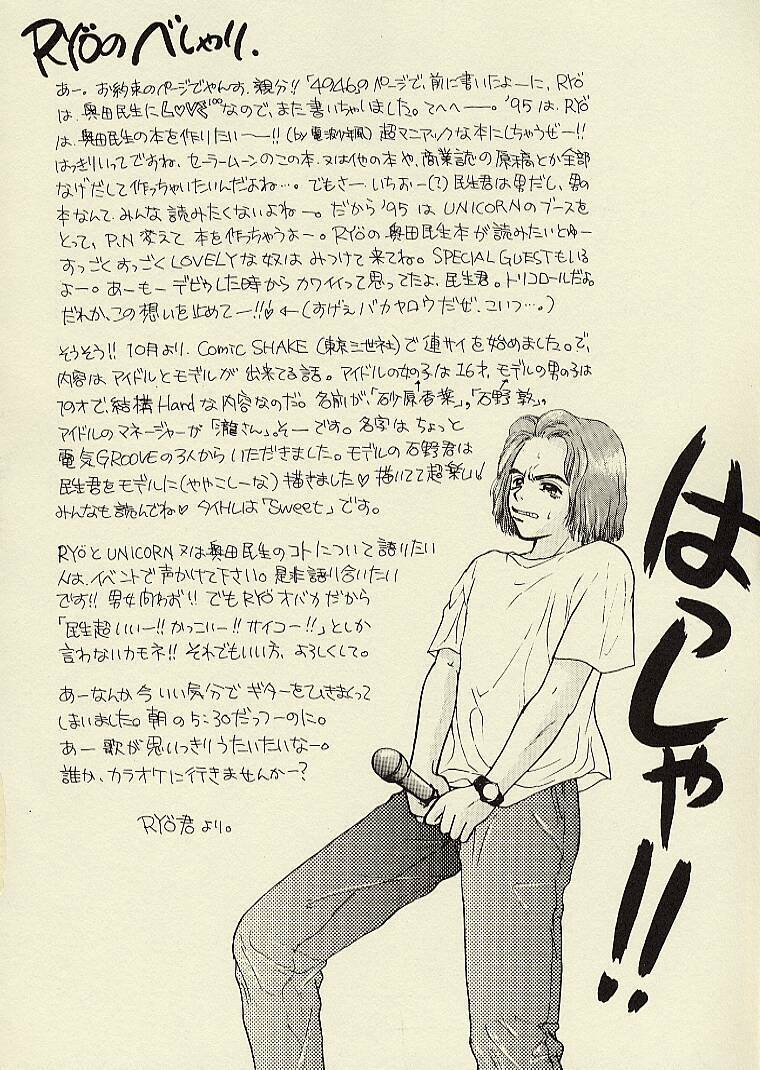 RYÖのべしゃり.
あー。お約束のページでやんす、親分!!「4946」のページで、前に書いたよーに、RYÖ
は、奥田民生にLOVE¹⁰⁰なので、また書いちゃいました。てへへー。'95は、RYÖ
は、奥田民生の本を作りたいー!!(by 電波少年風)超マニアックな本にしちゃうぜー!!
はっきりいってですね、セーラームーンのこの本、又は他の本や、商業誌の原稿とか全部
なげだして作っちゃいたいんだよね…。でもさー、いちおー(?)民生君は男だし、男の
本なんて、みんな読みたくないよねー。だから'95はUNICORNのブースを
とって、P.N変えて本を作っちゃうよー。RYÖの奥田民生本が読みたいとゆー
すっごくすっごくLOVELYな奴はみつけて来てね。SPECIAL GUESTもいる
よー。あーもーデビゥした時からカワイイって思ってたよ、民生君。トリコロールだよ。
だれか、この想いを止めてー!!♡←(すげぇバカヤロウだぜ、こいつ…。)
そうそう!!10月より、Comic SHAKE(東京三世社)で連サイを始めました。で、
内容はアイドルとモデルが出来てる話。アイドルの女の子は16才、モデルの男の子は
19才で、結構Hardな内容なのだ。名前が、「砂原香菜」。「石野敦」。
アイドルのマネージャーが「瀧さん」。そーです。名字はちょっと
電気GROOVEの3人からいただきました。モデルの石野君は
民生君をモデルに(ややこしーな)描きました♡描いてて超楽しい!
みんなも読んでね♡タイトルは「Sweet」です。
RYÖとUNICORN又は奥田民生のコトについて語りたい
人は、イベントで声かけて下さい。是非語り合いたい
です!!男女問わず!!でもRYÖオバカだから
「民生超いいー!!かっこいー!!サイコー!!」としか
言わないカモネ!!それでもいい方、よろしくして。
あーなんか今いい気分でギターをひきまくって
しまいました。朝の5:30だっつーのに。
あー歌が思いっきりうたいたいなー。
誰か、カラオケに行きませんかー?
RYÖ君より。
はっしゃ!!